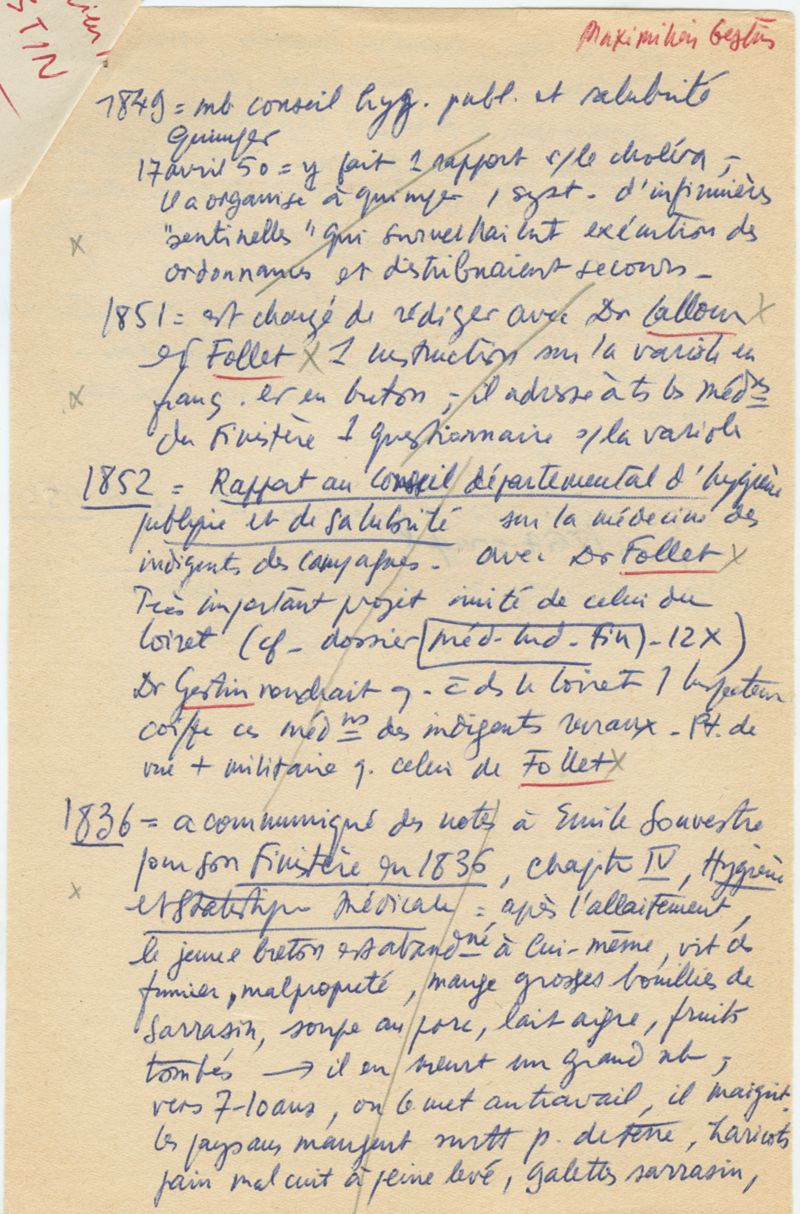 STIN
Maximilien Gestin
1849 = mb conseil hyg. publ. et salubrité
Quimper
17 avril 50 = y fait 1 rapport s/le choléra ;
il a organisé à Quimper 1 syst. d'infirmières
"sentinelles" qui surveillaient exécution des
ordonnances et distribuaient secours -
1851 = est chargé de rédiger avec Dr Calloux
et Follet 1 instruction sur la variole en
franç. et en breton ; il adresse à ts les médns
du Finistère 1 questionnaire s/la variole
1852 = Rapport au Conseil départemental d'hygiène
publique et de salubrité sur la médecine des
indigents des campagnes - avec Dr Follet
Très important projet imité de celui du
Loiret (cf - dossier méd-ind-Fin) - 12 X)
Dr Gestin voudrait q. c ds le Loiret 1 Inspecteur
coiffe ces médns des indigents ruraux - Pt. de
vue + militaire q. celui de Follet
1836 = a communiqué des notes à Emile Souvestre
pour son Finistère en 1836, chapitre IV, Hygiène
et Statistique Médicale = après l'allaitement,
le jeune breton est abandné à lui-même, vit ds
fumier, malpropreté, mange grosses bouillies de
sarrasin, soupe au porc, lait aigre, fruits
tombés → il en meurt un grand nb ;
vers 7-10 ans, on le met au travail, il maigrit.
les paysans mangent surtt p. de terre, haricots
pain mal cuit à peine levé, galettes sarrasin,